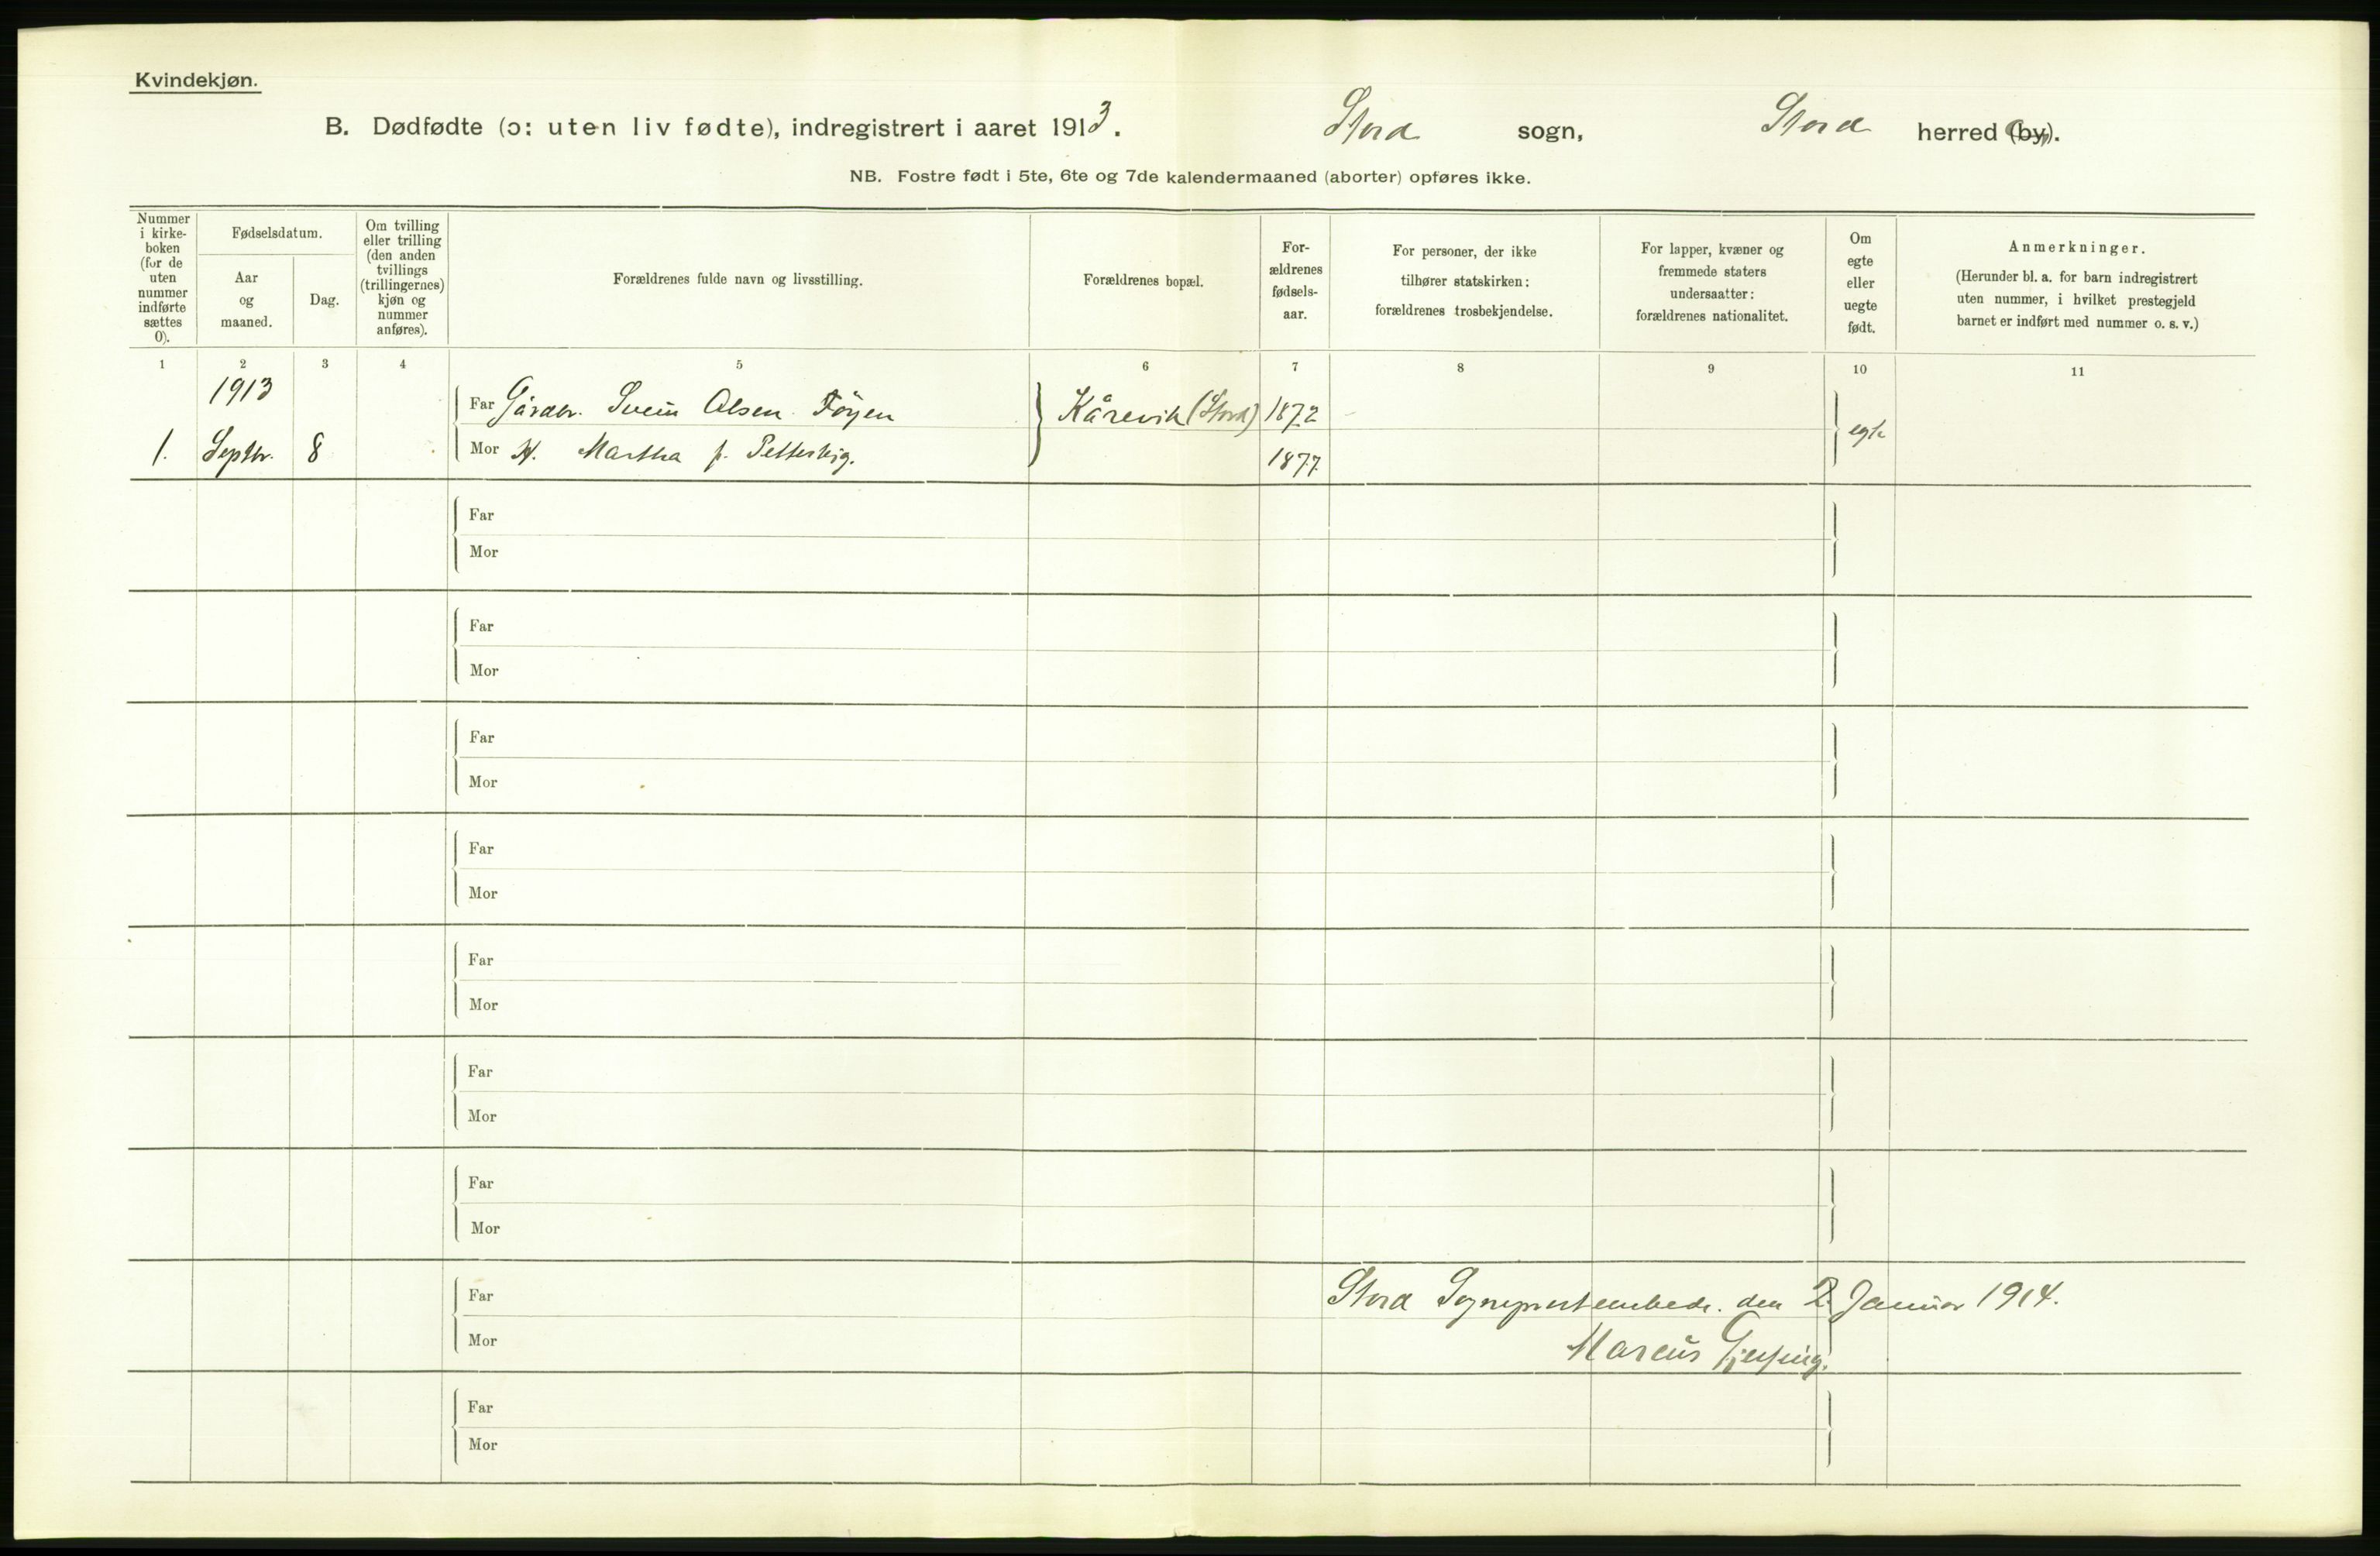 Kvindekjøn.
B. Dødfødte (ɔ: uten liv fødte), indregistrert i aaret 1913. Stord sogn, Stord herred (by).
NB. Fostre født i 5te, 6te og 7de kalendermaaned (aborter) opføres ikke.
Nummer
i kirke-
boken
(for de
uten
nummer
indførte
sættes
0).
Fødselsdatum.
Aar
og
maaned.
Dag.
Om tvilling
eller trilling
(den anden
tvillings
(trillingernes)
kjøn og
nummer
anføres).
Forældrenes fulde navn og livsstilling.
Forældrenes bopæl.
For-
ældrenes
fødsels-
aar.
For personer, der ikke
tilhører statskirken:
forældrenes trosbekjendelse.
For lapper, kvæner og
fremmede staters
undersaatter:
forældrenes nationalitet.
Om
egte
eller
uegte
født.
Anmerkninger.
(Herunder bl. a. for barn indregistrert
uten nummer, i hvilket prestegjeld
barnet er indført med nummer o. s. v.)
1 2 3 4 5 6 7 8 9 10 11
1913
Far Gårdbr. Svein Olsen Føyen Kårevik (Stord) 1872
1. Septbr. 8 Mor H. Martha f. Petterteig. 1877. egte
Far
Mor
Far
Mor
Far
Mor
Far
Mor
Far
Mor
Far
Mor
Far
Mor
Far Stord Sogneprestembede. den 2. Januar 1914.
Mor Marcus Gjessing.
Far
Mor